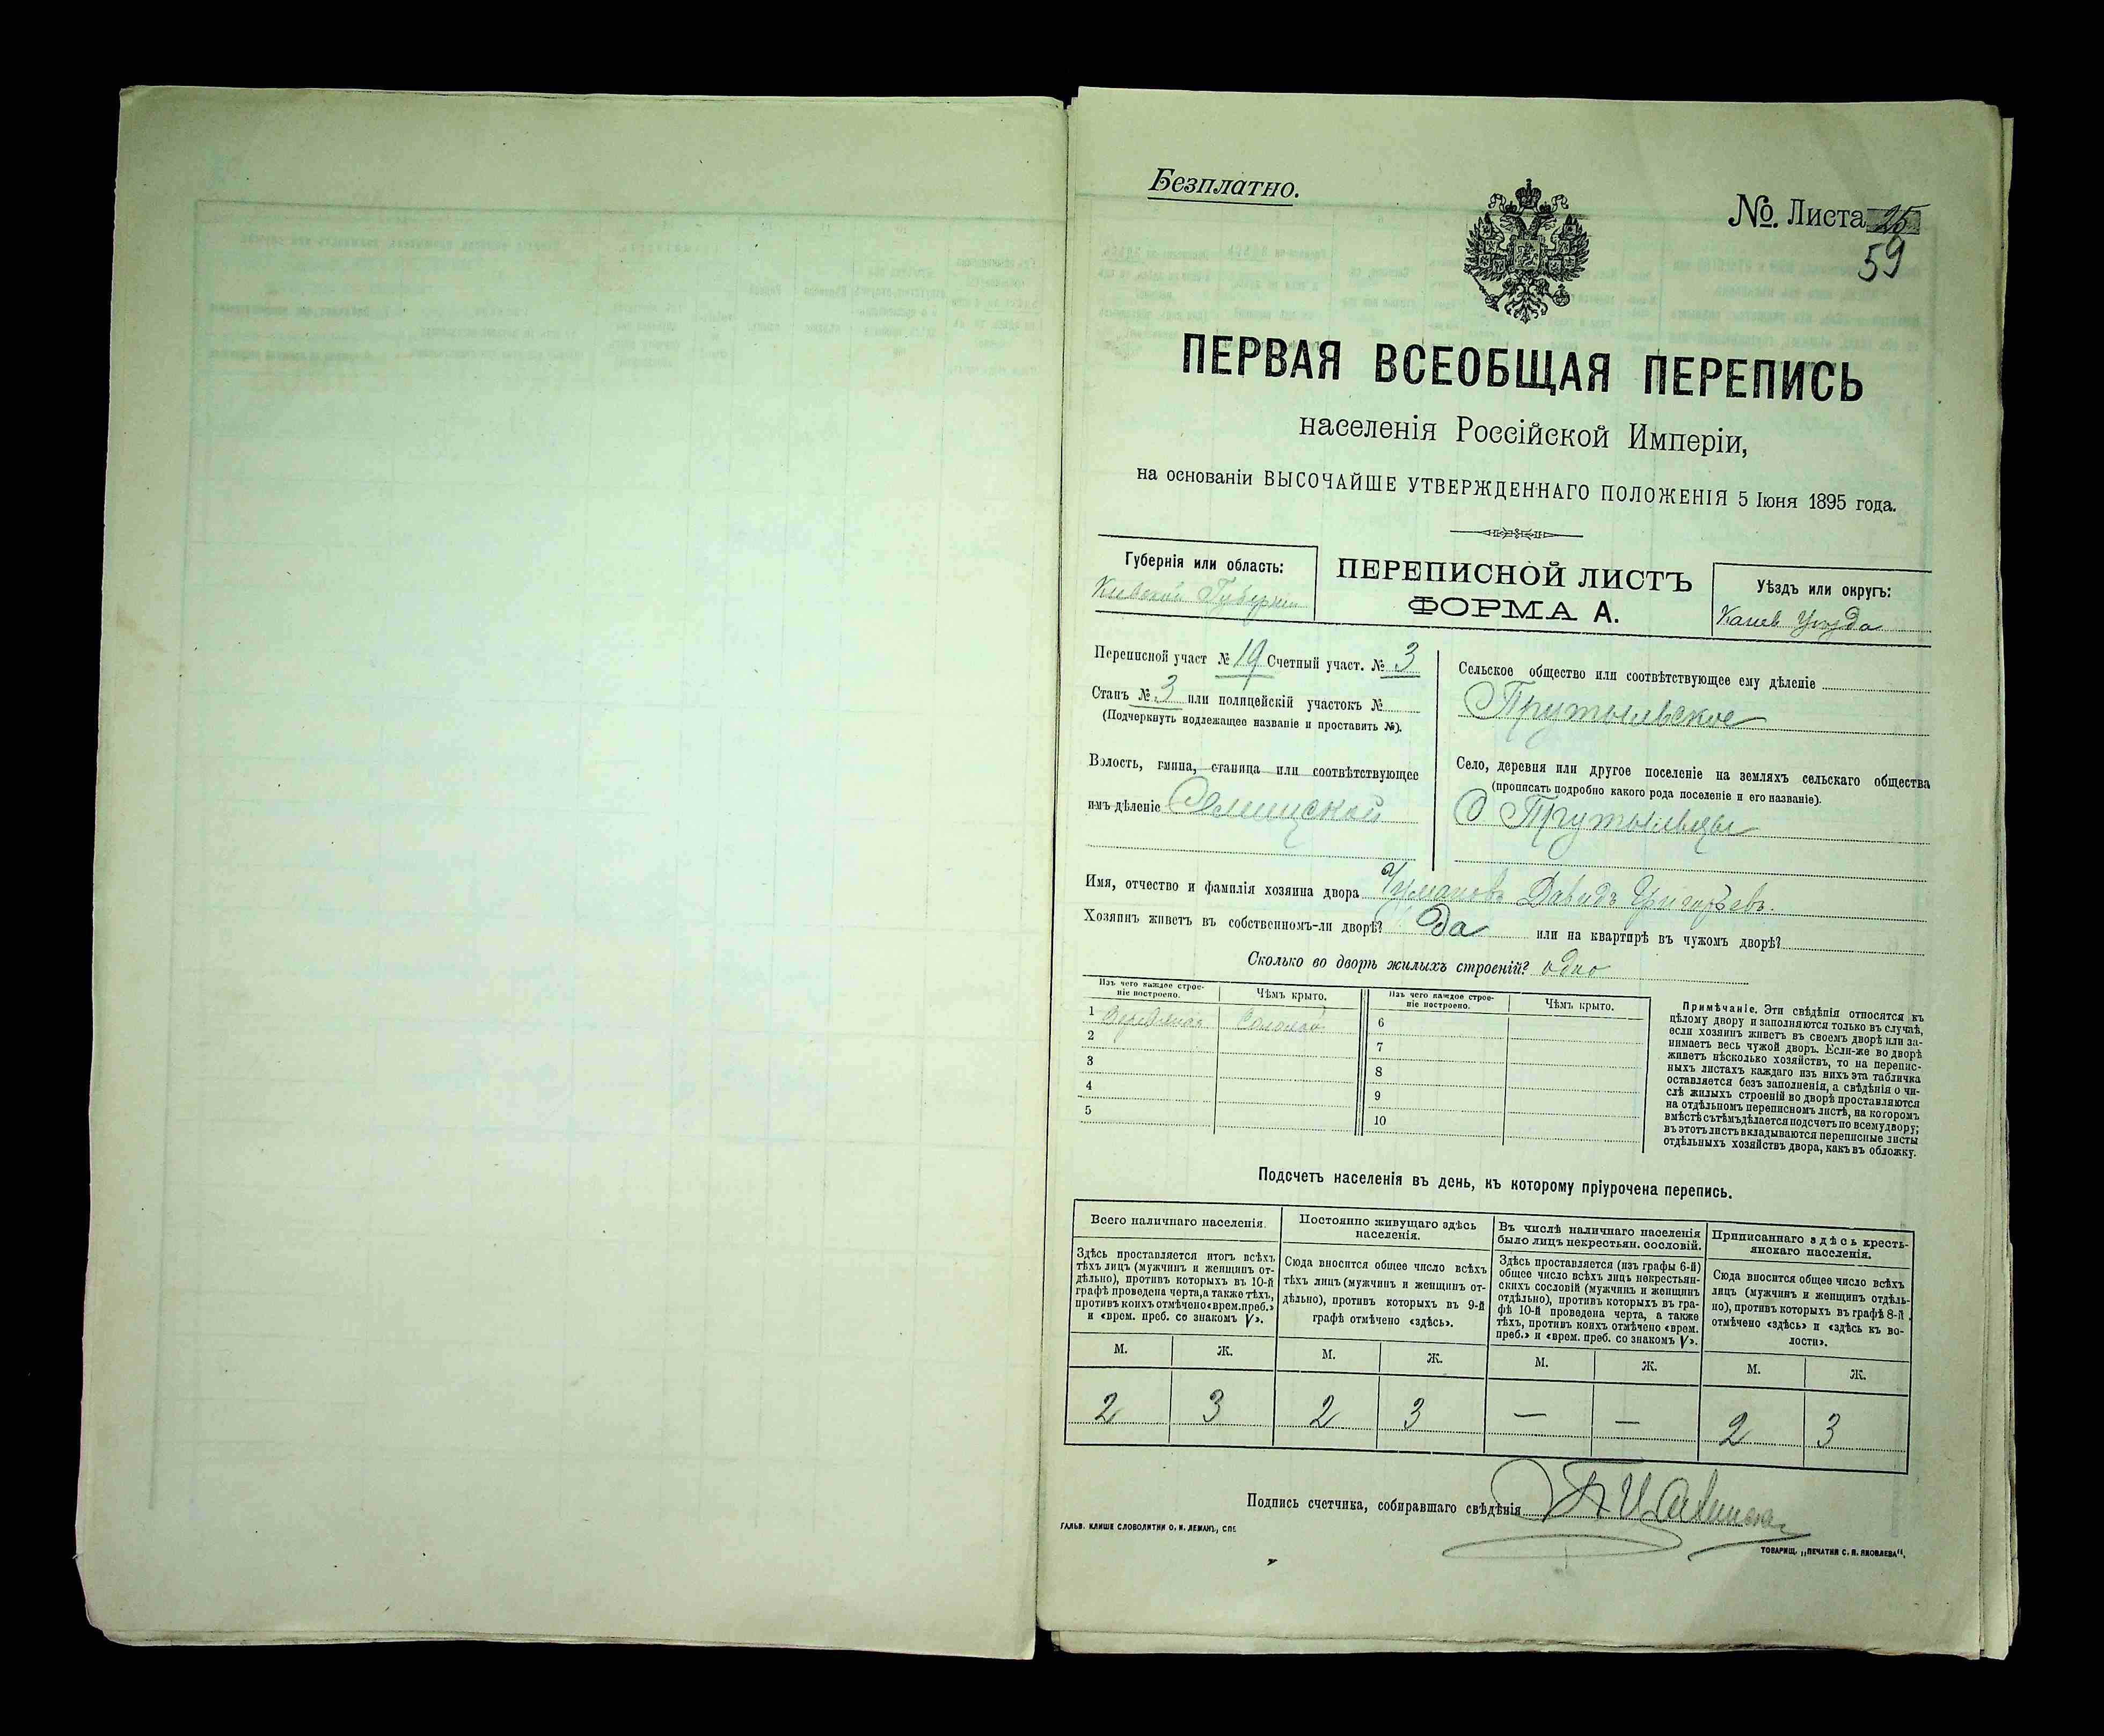 Безплатно.
№. Листа 25
59
ПЕРВАЯ ВСЕОБЩАЯ ПЕРЕПИСЬ
населенія Россійской Имперіи,
на основаніи ВЫСОЧАЙШЕ УТВЕРЖДЕННАГО ПОЛОЖЕНІЯ 5 Іюня 1895 года.
Губернія или область:
Киевской Губернии
ПЕРЕПИСНОЙ ЛИСТЪ
ФОРМА А.
Уѣздъ или округъ:
Канев Уезда
Переписной участ № 19 Счетный участ. № 3
Станъ № 3 или полицейскій участокъ №
(Подчеркнуть надлежащее названіе и проставить №).
Волость, гмина, станица или соотвѣтствующее
имъ дѣленіе
Сельское общество или соотвѣтствующее ему дѣленіе
Прутыльское
Село, деревня или другое поселеніе на земляхъ сельскаго общества
(прописать подробно какого рода поселеніе и его названіе).
С Прутыльцы
Имя, отчество и фамилія хозяина двора Давидъ Григорьевъ.
Хозяинъ живетъ въ собственномъ-ли дворѣ? Да или на квартирѣ въ чужомъ дворѣ?
Сколько во дворѣ жилыхъ строеній? одно
Изъ чего каждое строе-
ніе построено.
Чѣмъ крыто.
Изъ чего каждое строе-
ніе построено.
Чѣмъ крыто.
1 Деревяное Соломой
2
3
4
5
6
7
8
9
10
Примѣчаніе. Эти свѣдѣнія относятся къ
цѣлому двору и заполняются только въ случаѣ,
если хозяинъ живетъ въ своемъ дворѣ или за-
нимаетъ весь чужой дворъ. Если-же во дворѣ
живетъ нѣсколько хозяйствъ, то на перепис-
ныхъ листахъ каждаго изъ нихъ эта табличка
оставляется безъ заполненія, а свѣдѣнія о чи-
слѣ жилыхъ строеній во дворѣ проставляются
на отдѣльномъ переписномъ листѣ, на которомъ
вмѣстѣ съ тѣмъ дѣлается подсчетъ по всему двору;
въ этотъ листъ вкладываются переписные листы
отдѣльныхъ хозяйствъ двора, какъ въ обложку.
Подсчетъ населенія въ день, къ которому пріурочена перепись.
Всего наличнаго населенія.
Здѣсь проставляется итогъ всѣхъ
тѣхъ лицъ (мужчинъ и женщинъ от-
дѣльно), противъ которыхъ въ 10-й
графѣ проведена черта, а также тѣхъ,
противъ коихъ отмѣчено «врем. преб.»
и «врем. преб. со знакомъ V».
Постоянно живущаго здѣсь
населенія.
Сюда вносится общее число всѣхъ
тѣхъ лицъ (мужчинъ и женщинъ от-
дѣльно), противъ которыхъ въ 9-й
графѣ отмѣчено «здѣсь».
Въ числѣ наличнаго населенія
было лицъ некрестьян. сословій.
Здѣсь проставляется (изъ графы 6-й)
общее число всѣхъ лицъ некрестьян-
скихъ сословій (мужчинъ и женщинъ
отдѣльно), противъ которыхъ въ гра-
фѣ 10-й проведена черта, а также
тѣхъ, противъ коихъ отмѣчено «врем.
преб.» и «врем. преб. со знакомъ V».
Приписаннаго здѣсь кресть-
янскаго населенія.
Сюда вносится общее число всѣхъ
лицъ (мужчинъ и женщинъ отдѣль-
но), противъ которыхъ въ графѣ 8-й
отмѣчено «здѣсь» и «здѣсь къ во-
лости».
М. Ж. М. Ж. М. Ж. М. Ж.
2 3 2 3 — — 2 3
Подпись счетчика, собиравшаго свѣдѣнія
ГАЛЬВ. КЛИШЕ СЛОВОЛИТНИ О. И. ЛЕМАНЪ, СПБ
ТОВАРИЩ. „ПЕЧАТНЯ С. П. ЯКОВЛЕВА“.